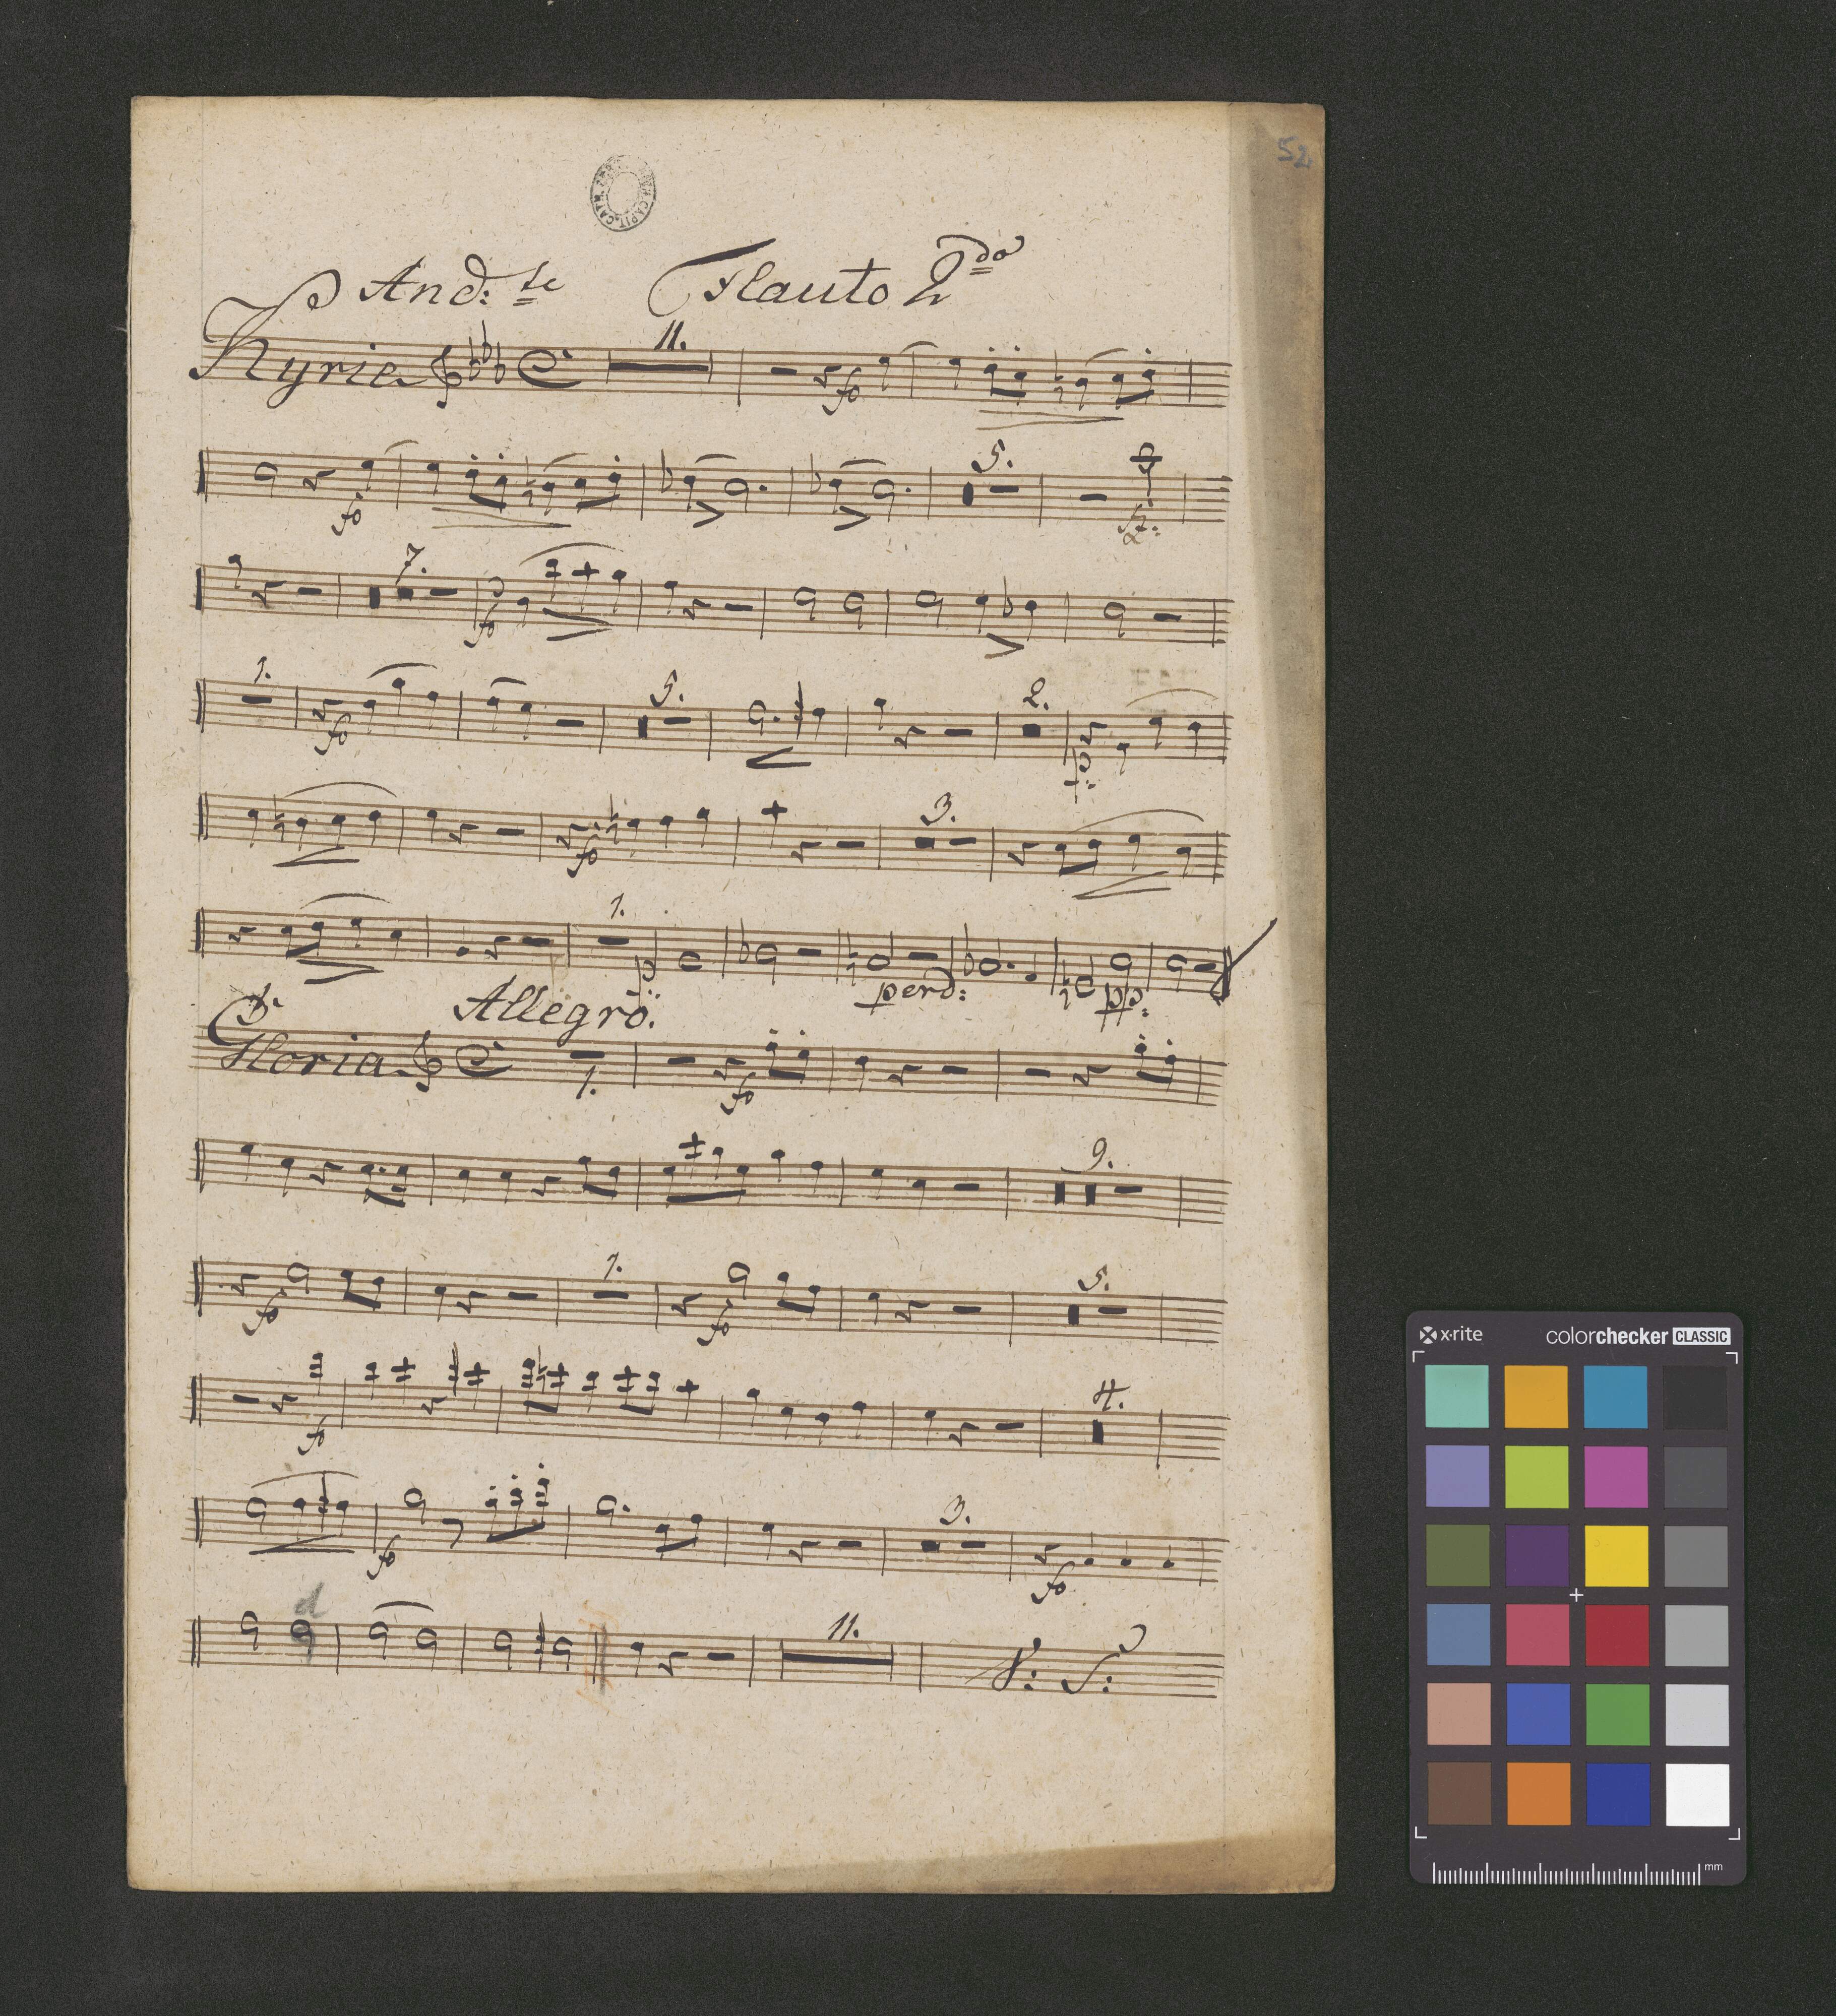 52
And:te Flauto 2do
Kyrie 11.
fo
fo 5.
7.
fo
1. 5. 2.
fo p:
3.
fo
1.
perd: pp:
Allegro.
Gloria 1.
fo
9.
1. 5.
fo fo
4.
fo
3.
fo fo
d
11. V: S:
x·rite colorchecker CLASSIC
mm